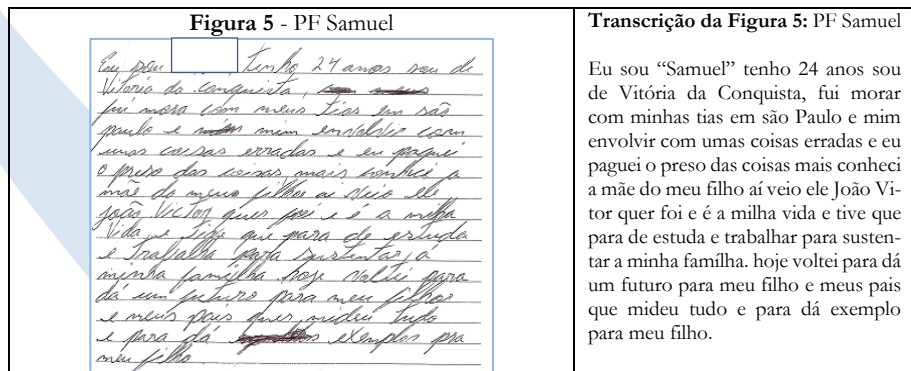 Figura 5 - PF Samuel
Eu sou tenho 24 anos sou de
Vitoria da conquista,
fui mora com meus tios em são
paulo e mim envolvir com
umas coisas erradas e eu paguei
o preso das coisas mais conheci a
mãe do meus filhos ai veio ele
joão Victor quer foi e é a milha
Vida e tive que para de estuda
e Trabalha para sustentar a
minha familha hoje voltei para
dá um futuro para meu filhos
e meus pais quer mideu tudo
e para dá exemplos pra
meu filho.
Transcrição da Figura 5: PF Samuel
Eu sou “Samuel” tenho 24 anos sou
de Vitória da Conquista, fui morar
com minhas tias em são Paulo e mim
envolvir com umas coisas erradas e eu
paguei o preso das coisas mais conheci
a mãe do meu filho aí veio ele João Vi-
tor quer foi e é a milha vida e tive que
para de estuda e trabalhar para susten-
tar a minha famílha. hoje voltei para dá
um futuro para meu filho e meus pais
que mideu tudo e para dá exemplo
para meu filho.